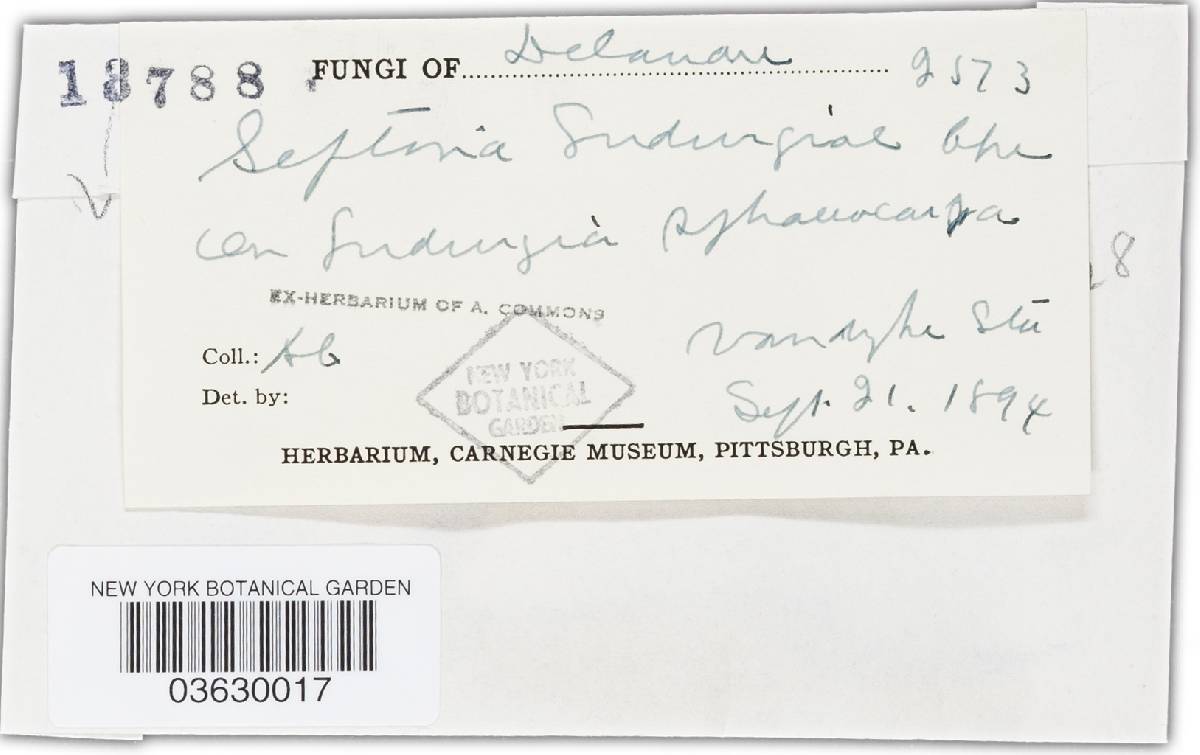 13788
FUNGI OF Delaware 2573
Septoria Ludwigiae Cke
on Ludwigia sphaerocarpa
EX-HERBARIUM OF A. COMMONS
Vandyke Sta
Coll.: AC
Sept. 21. 1894
Det. by:
NEW YORK
BOTANICAL
GARDEN
HERBARIUM, CARNEGIE MUSEUM, PITTSBURGH, PA.
8
NEW YORK BOTANICAL GARDEN
03630017